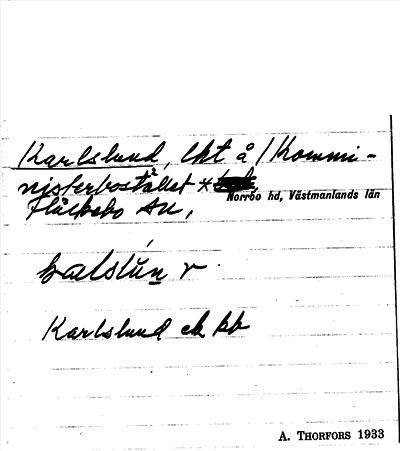 Karlslund, lht å /Kommi-
nisterbostället *
Norrbo hd, Västmanlands län
Fläckebo sn,
Karlslund ek kb
A. THORFORS 1933